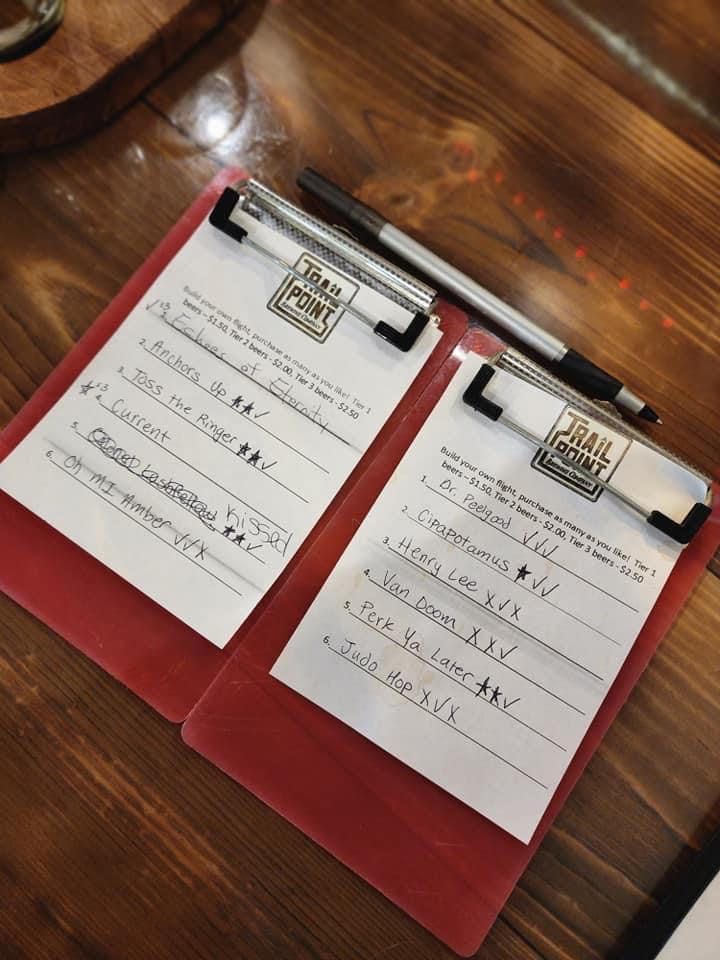 TRAIL
POINT
BREWING COMPANY
Build your own flight, purchase as many as you like! Tier 1
beers - $1.50, Tier 2 beers - $2.00, Tier 3 beers - $2.50
1. Echoes of Eternity
2. Anchors Up ★★✓
3. Toss the Ringer ★★✓
4. Current
5. Kissed ★★✓
6. Oh mI Amber ✓✓X
TRAIL
POINT
BREWING COMPANY
Build your own flight, purchase as many as you like! Tier 1
beers - $1.50, Tier 2 beers - $2.00, Tier 3 beers - $2.50
1. Dr. Peelgood ✓✓✓
2. Cipapotamus ★✓✓
3. Henry Lee X✓X
4. Van Doom XX✓
5. Perk Ya Later ★★✓
6. Judo Hop X✓X